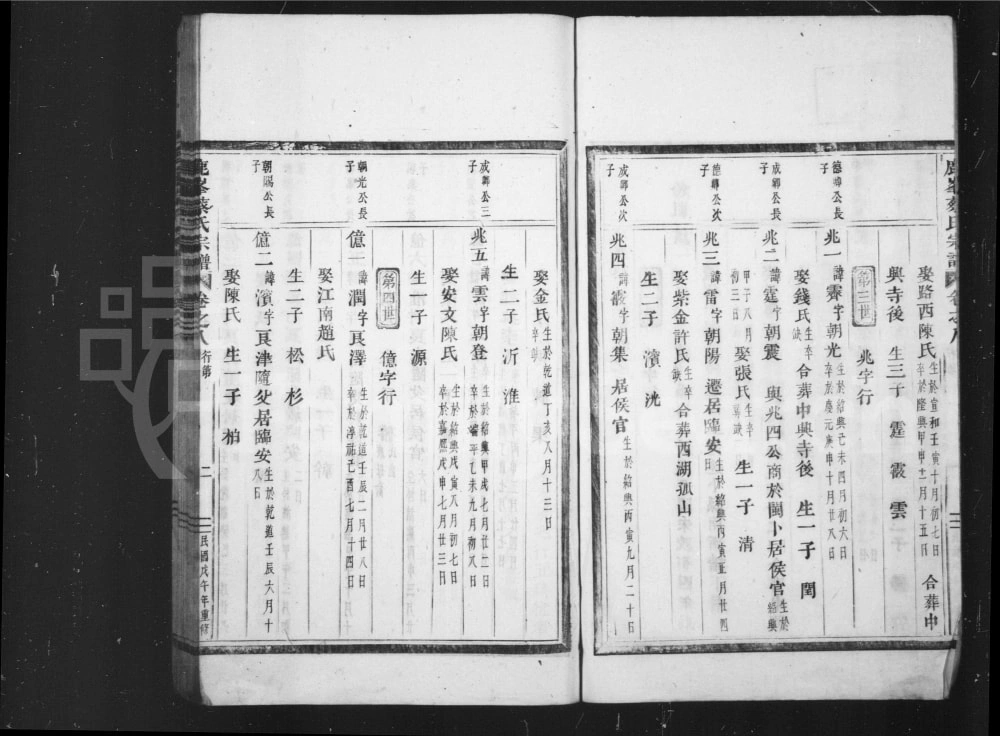 鹿峯蔡氏宗譜 卷之八
娶路西陳氏 生於宣和壬寅十月初七日 卒於隆興甲申十月十五日 合葬中
興寺後 生三子 霆 霰 雲
第三世 兆字行
德卿公長子 兆一 諱霽字朝光 生於紹興己未四月初六日 卒於慶元庚申十月廿八日
娶錢氏 生卒缺 合葬中興寺後 生一子 閏
成卿公長子 兆二 諱霆字朝震 與兆四公商於閩卜居侯官 生於紹興
甲子八月初三日 娶張氏 生卒葬缺 生一子 清
德卿公次子 兆三 諱雷字朝陽 遷居臨安 生於紹興丙寅正月廿四日
娶紫金許氏 生卒缺 合葬西湖孤山
生二子 濱 洸
成卿公次子 兆四 諱霰字朝集 居侯官 生於紹興丙寅九月二十日
娶金氏 生於乾道丁亥八月十三日
生二子 沂 淮
成卿公三子 兆五 諱雲字朝登 生於紹興甲戌七月廿二日 卒於端平乙未九月初八日
娶安文陳氏 生於紹興戊寅八月初七日 卒於嘉熙戊申七月廿三日
生一子 源
第四世 億字行
朝光公長子 億一 諱潤字良澤 生於乾道壬辰二月廿八日 卒於淳祐己酉七月十四日
娶江南趙氏
生二子 松 杉
朝陽公長子 億二 諱濱字良津隨父居臨安 生於乾道壬辰六月十八日
娶陳氏 生一子 柏
鹿峯蔡氏宗譜 卷之八 行第 二 民國戊午年重修